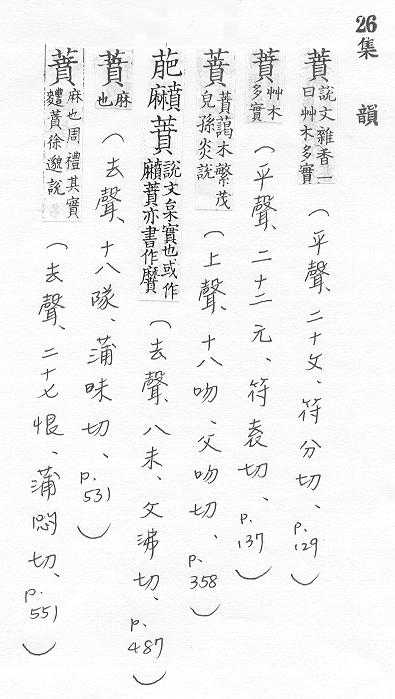 26集韻
蕡 說文雜香一曰艸木多實（平聲、二十文、符分切、p.129）
蕡 艸木多實（平聲、二十二元、符袁切、p.137）
蕡 蕡藹木繁茂皃孫炎說（上聲、十八吻、父吻切、p.358）
萉 蕡 說文枲實也或作 蕡亦書作黂（去聲、八未、父沸切、p.487）
蕡 麻也（去聲、十八隊、蒲昧切、p.531）
蕡 麻也周禮其實麷蕡徐邈說（去聲、二十七恨、蒲悶切、p.551）